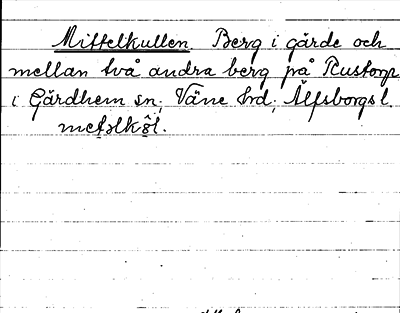 Mittelkullen Berg i gärde och
mellan två andra berg på Rustorp
i Gärdhem sn; Väne hrd; Älfsborgs l.